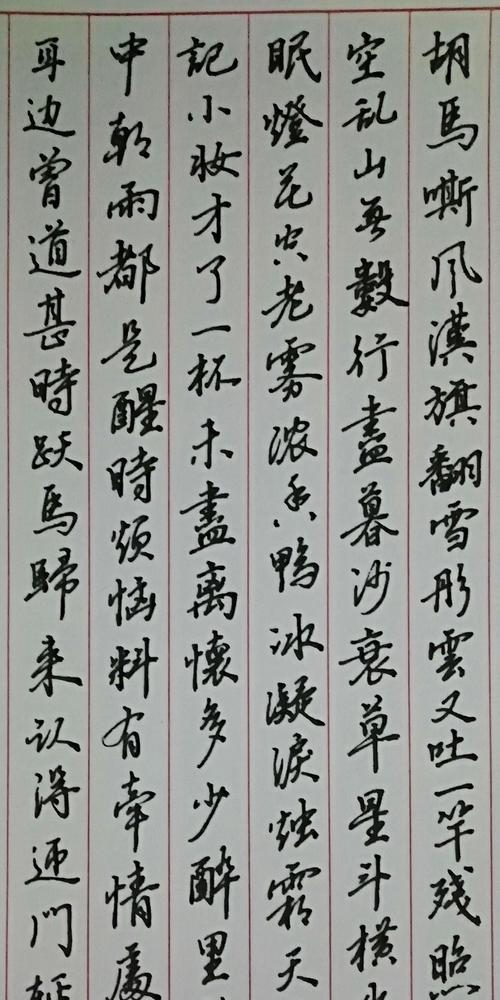 胡馬嘶风漢旗翻雪彤雲又吐一竿残照
空乱山無數行盡暮沙衰草星斗横
眠燈花空老雾浓香鸭冰凝淚烛霜天
記小妆才了一杯未盡离懷多少醉里
中朝雨都是醒時烦恼料有牵情處
耳边曾道甚時跃馬歸来认得迎門